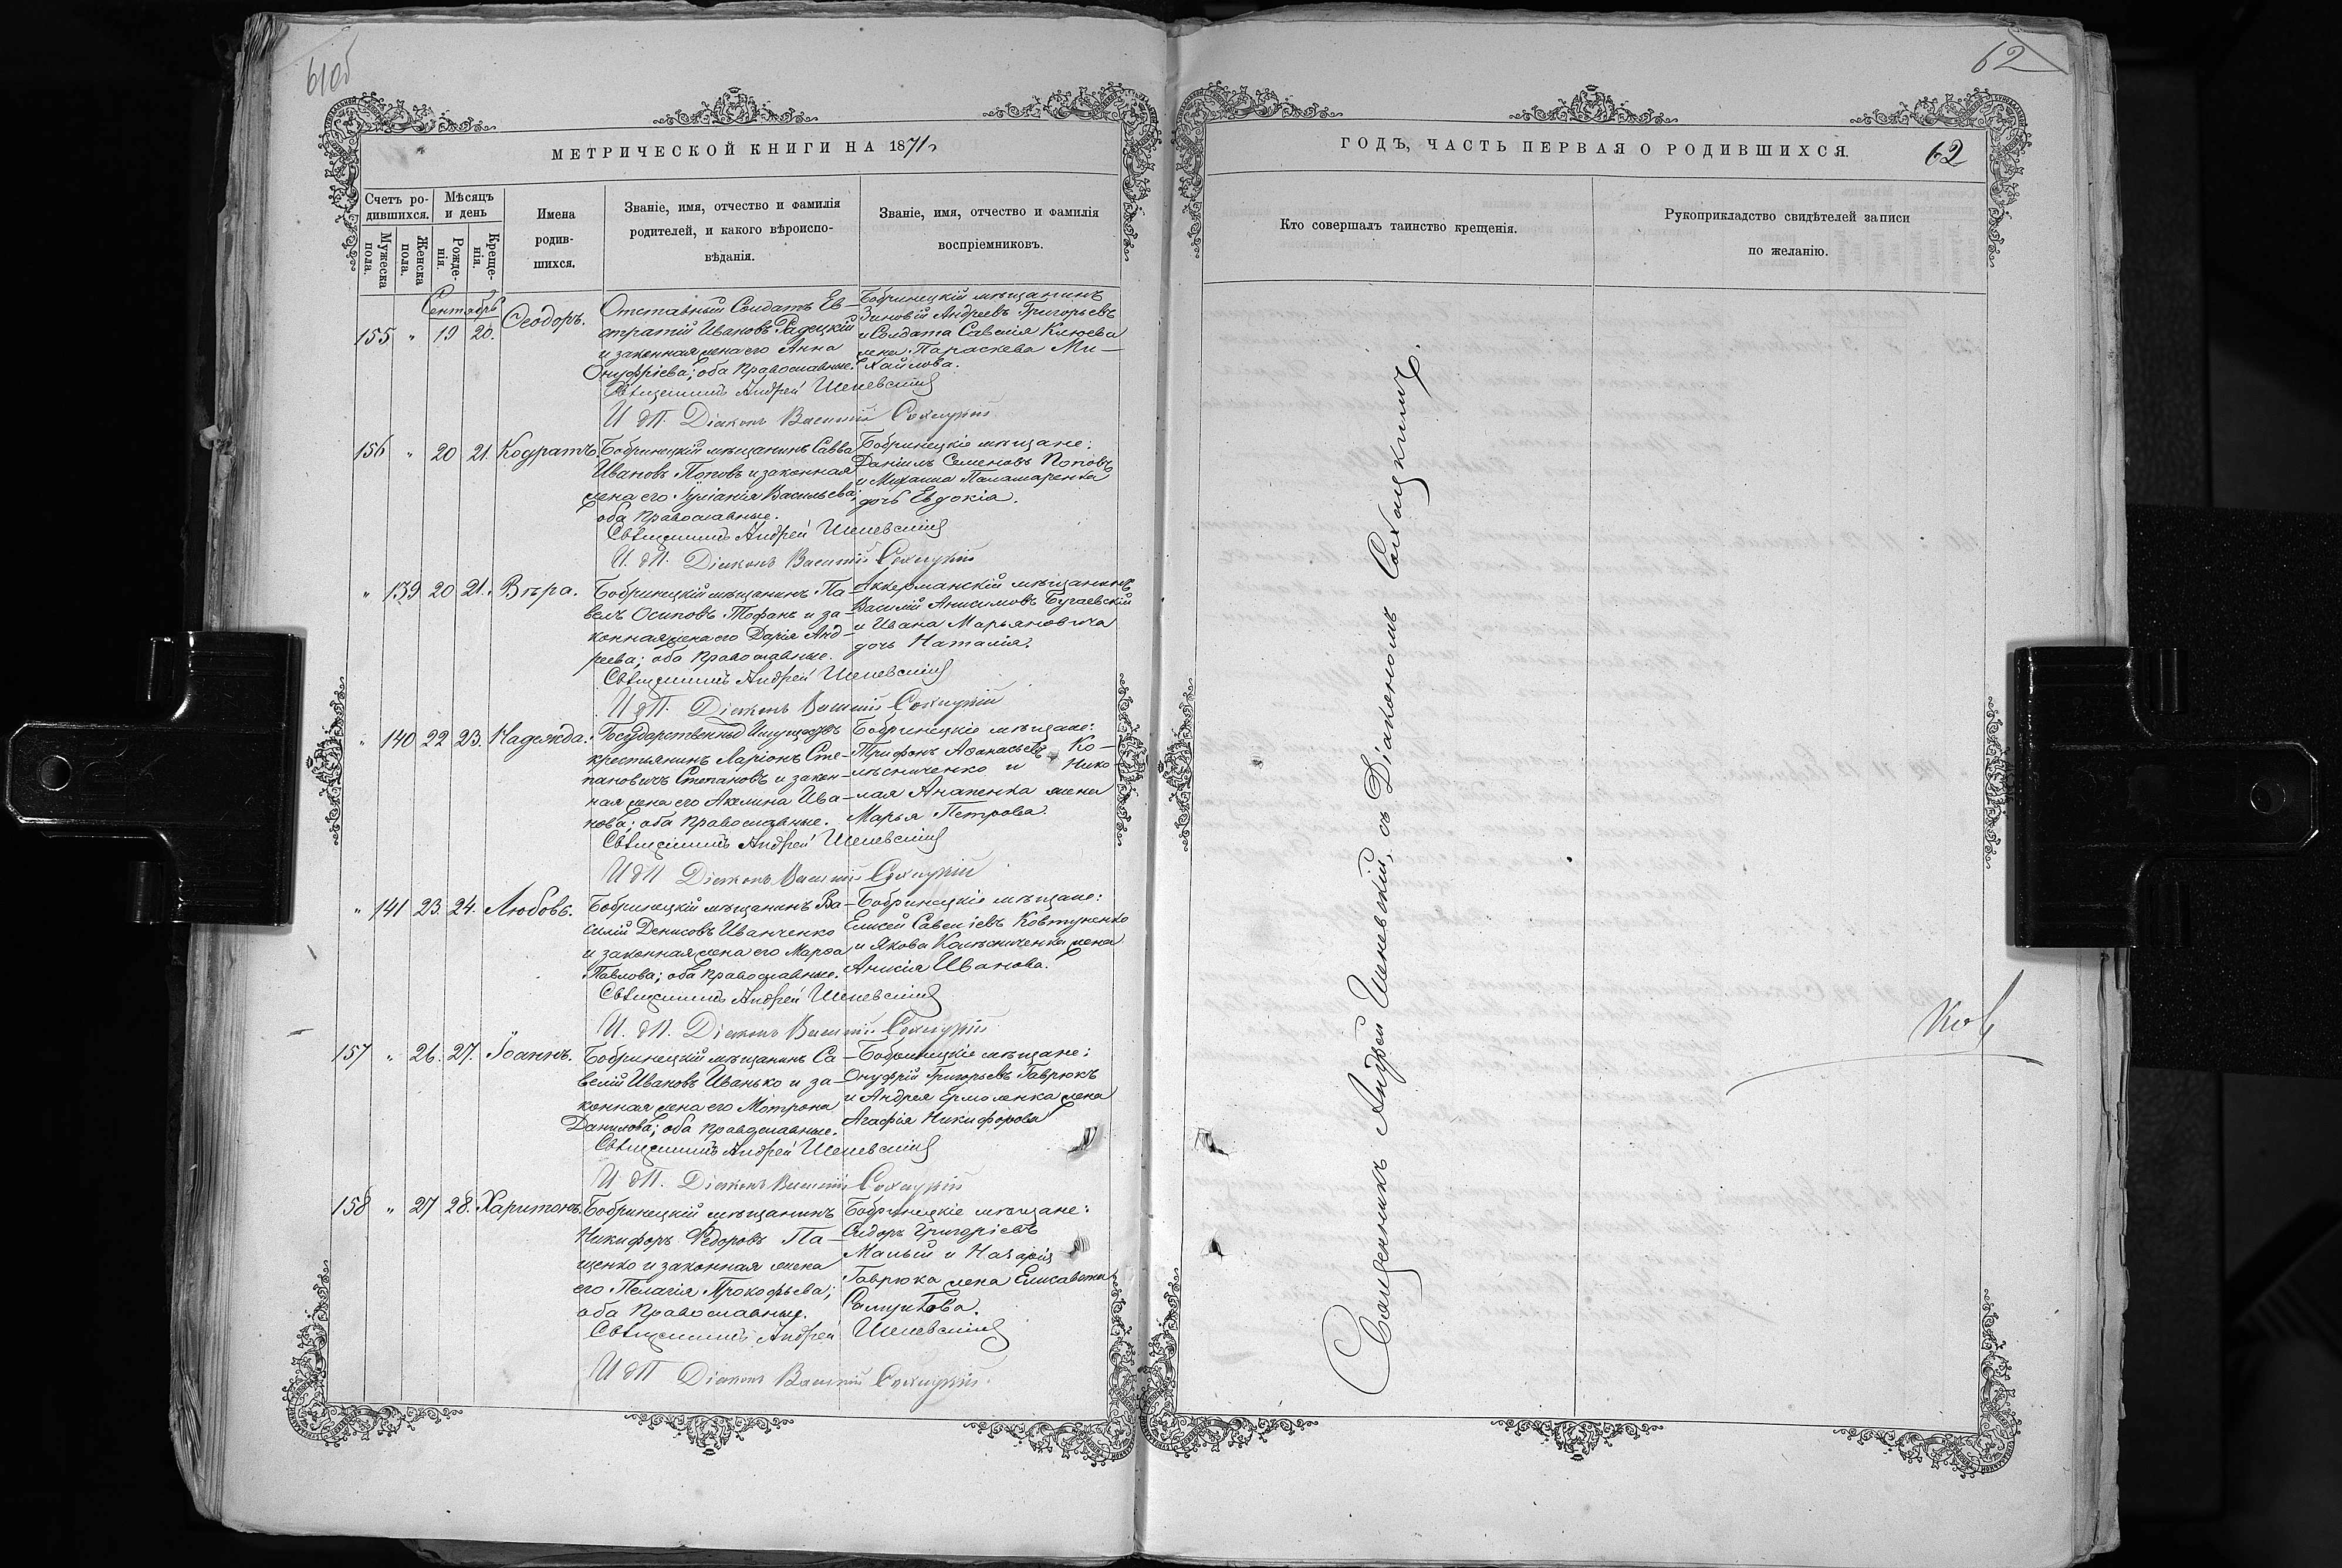 61об
МЕТРИЧЕСКОЙ КНИГИ НА 1871
Счетъ ро-
дившихся.
Мужеска
пола.
Женска
пола.
Мѣсяцъ
и день
Рожде-
нія.
Креще-
нія.
Имена
родив-
шихся.
Званіе, имя, отчество и фамилія
родителей, и какого вѣроиспо-
вѣданія.
Званіе, имя, отчество и фамилія
воспріемниковъ.
Сентябрь
155 " 19 20. Ѳеодоръ.
Отставный Солдатъ Ев-
стратій Ивановъ Радецкій
и законная жена его Анна
Онуфріева; оба православные.
Бобринецкій мѣщанинъ
Зиновій Андреевъ Григорьевъ
и Солдата Савелія Клюева
жена Параскева Ми-
хайлова.
Священникъ Андрей Шеневскій
И д П. Діаконъ Василій Сохацкій
156 " 20 21. Кодратъ.
Бобринецкій мѣщанинъ Савва
Ивановъ Поповъ и законная
жена его Іуліанія Васильева;
оба православные.
Бобринецкіе мѣщане:
Даніилъ Семеновъ Поповъ
и Михаила Паламаренка
дочь Евдокія.
Священникъ Андрей Шеневскій
И. д П. Діаконъ Василій Сохацкій
" 139 20 21. Вѣра.
Бобринецкій мѣщанинъ Па-
велъ Осиповъ Тофанъ и за-
конная жена его Дарія Анд-
реева; оба православные.
Аккерманскій мѣщанинъ
Василій Анисимовъ Бугаевскій
и Ивана Марьяновича
дочь Наталія.
Священникъ Андрей Шеневскій
И д П. Діаконъ Василій Сохацкій
" 140 22 23. Надежда.
Государственныхъ Имуществъ
крестьянинъ Ларіонъ Сте-
пановичъ Степановъ и закон-
ная жена его Акилина Ива-
нова; оба православные.
Бобринецкіе мѣщане:
Трифонъ Аѳанасьевъ Ко-
лѣсниченко и Нико-
лая Ананенка жена
Марья Петрова.
Священникъ Андрей Шеневскій
И д П Діаконъ Василій Сохацкій
" 141 23. 24. Любовь.
Бобринецкій мѣщанинъ Ва-
силій Денисовъ Иванченко
и законная жена его Марѳа
Павлова; оба православные.
Бобринецкіе мѣщане:
Елисей Савеліевъ Ковтуненко
и Якова Колѣсниченка жена
Анисія Иванова.
Священникъ Андрей Шеневскій
И. д П. Діаконъ Василій Сохацкій
157 " 26. 27. Іоаннъ.
Бобринецкій мѣщанинъ Са-
велій Ивановъ Иванько и за-
конная жена его Мотрона
Данилова; оба православные.
Бобринецкіе мѣщане:
Онуфрій Григорьевъ Гаврюкъ
и Андрея Ермоленка жена
Агафія Никифорова
Священникъ Андрей Шеневскій
И. д П. Діаконъ Василій Сохацкій
158 " 27 28. Харитонъ.
Бобринецкій мѣщанинъ
Никифоръ Ѳедоровъ Па-
щенко и законная жена
его Пелагія Прокофьева;
оба православные.
Бобринецкіе мѣщане:
Сидоръ Григоріевъ
Малый и Назарія
Гаврюка жена Елисавета
Самуилова.
Священникъ Андрей Шеневскій
И д П Діаконъ Василій Сохацкій
62
ГОДЪ, ЧАСТЬ ПЕРВАЯ О РОДИВШИХСЯ.
62
Кто совершалъ таинство крещенія.
Рукоприкладство свидѣтелей записи
по желанію.
Священникъ Андрей Шеневскій, съ Діакономъ Сохацкимъ.